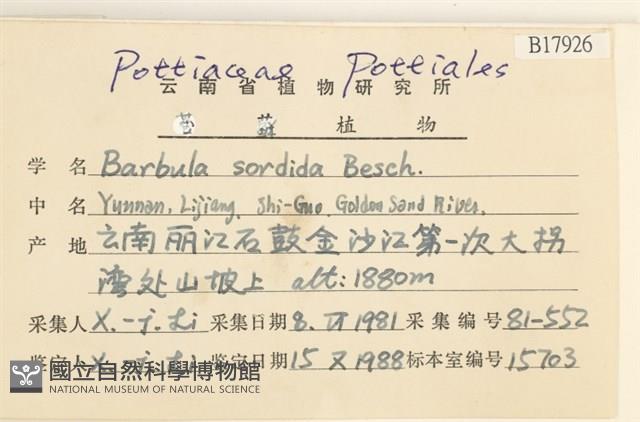 B17926
Pottiaceae Pottiales
云南省植物研究所
苔藓植物
学名 Barbula sordida Besch.
中名 Yunnan, Lijiang, Shi-Guo, Golden Sand River.
产地 云南丽江石鼓金沙江第一次大拐
湾处山坡上 alt: 1880m
采集人 X.-j. Li 采集日期 8. VI 1981 采集编号 81-552
鉴定人 X.-j. Li 鉴定日期 15 X 1988 标本室编号 15703
國立自然科學博物館
NATIONAL MUSEUM OF NATURAL SCIENCE